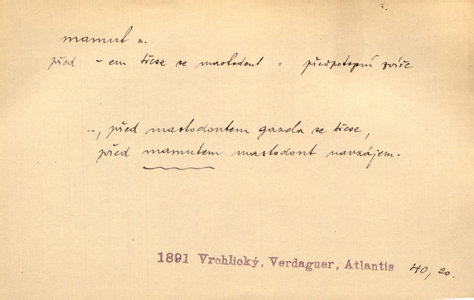 mamut m.
před -em třese se mastodont : předpotopní zvíře
.., před mastodontem gazela se třese,
před mamutem mastodont navzájem.
1891 Vrchlický, Verdaguer, Atlantis 40, 20.